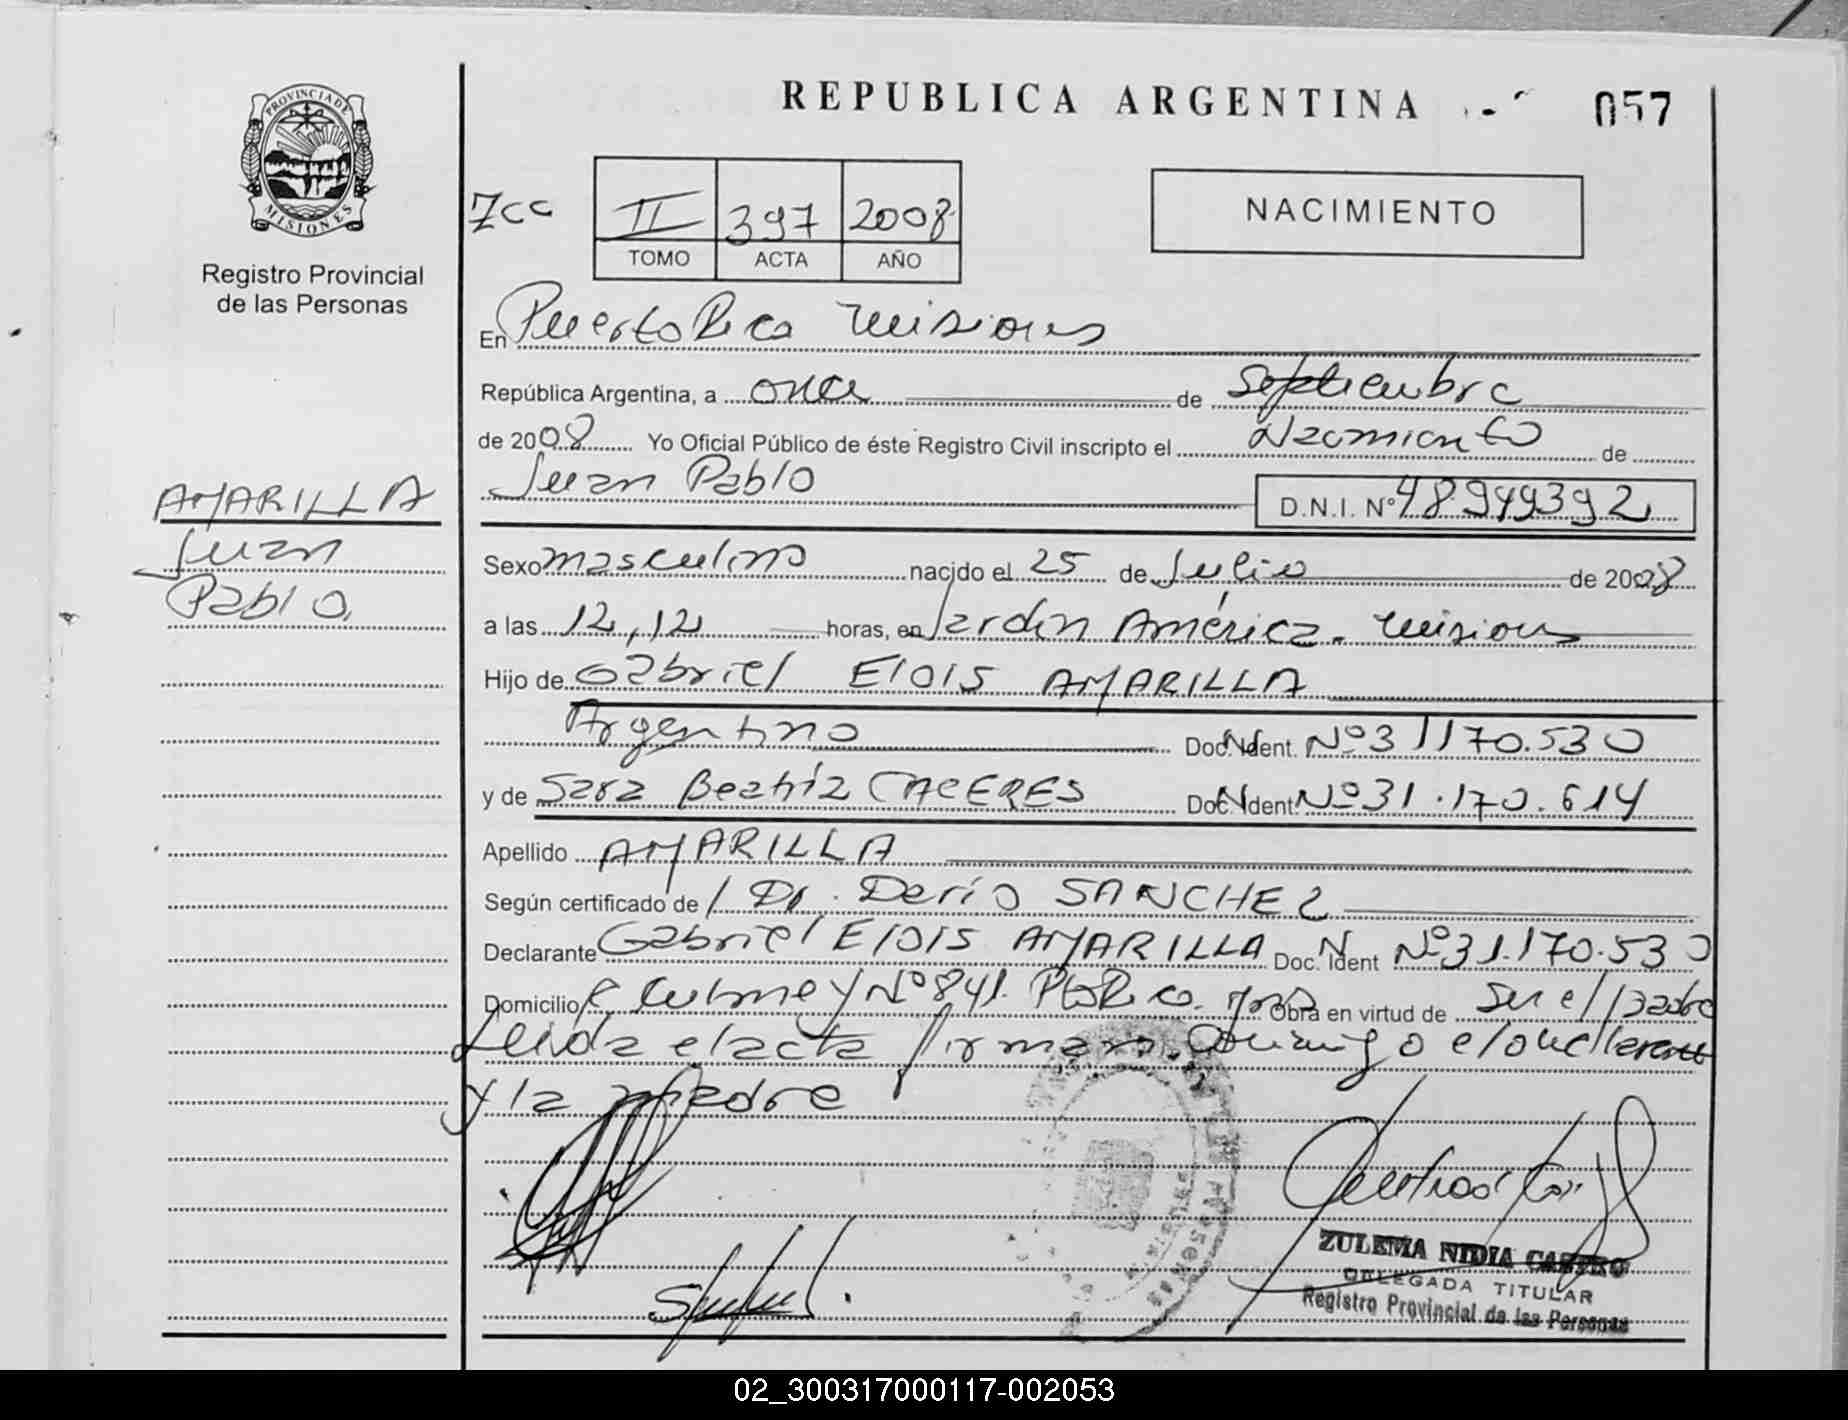 REPUBLICA ARGENTINA
057
PROVINCIA DE
MISIONES
Registro Provincial
de las Personas
7cc
II 397 2008
TOMO ACTA AÑO
NACIMIENTO
En Puerto Rico Misiones
República Argentina, a once de Septiembre
de 2008 Yo Oficial Público de éste Registro Civil inscripto el Nacimiento de
Juan Pablo D.N.I. Nº 48949392
AMARILLA
Juan
Pablo
Sexo masculino nacido el 25 de Julio de 2008
a las 12,12 horas, en Jardin América. Misiones
Hijo de Gabriel Elois AMARILLA
Argentino Doc. N. Ident. Nº 31170.530
y de Sara Beatriz CACERES Doc. N. Ident. Nº 31.170.614
Apellido AMARILLA
Según certificado de / Dr. Dario SANCHEZ
Declarante Gabriel Elois AMARILLA Doc. N. Ident Nº 31.170.530
Domicilio Nº 841. Pto Rico. Obra en virtud de ser el padre
Leida el acta firman conmigo el declarante
y la madre
ZULEMA NIDIA CASTRO
DELEGADA TITULAR
Registro Provincial de las Personas
02_300317000117-002053